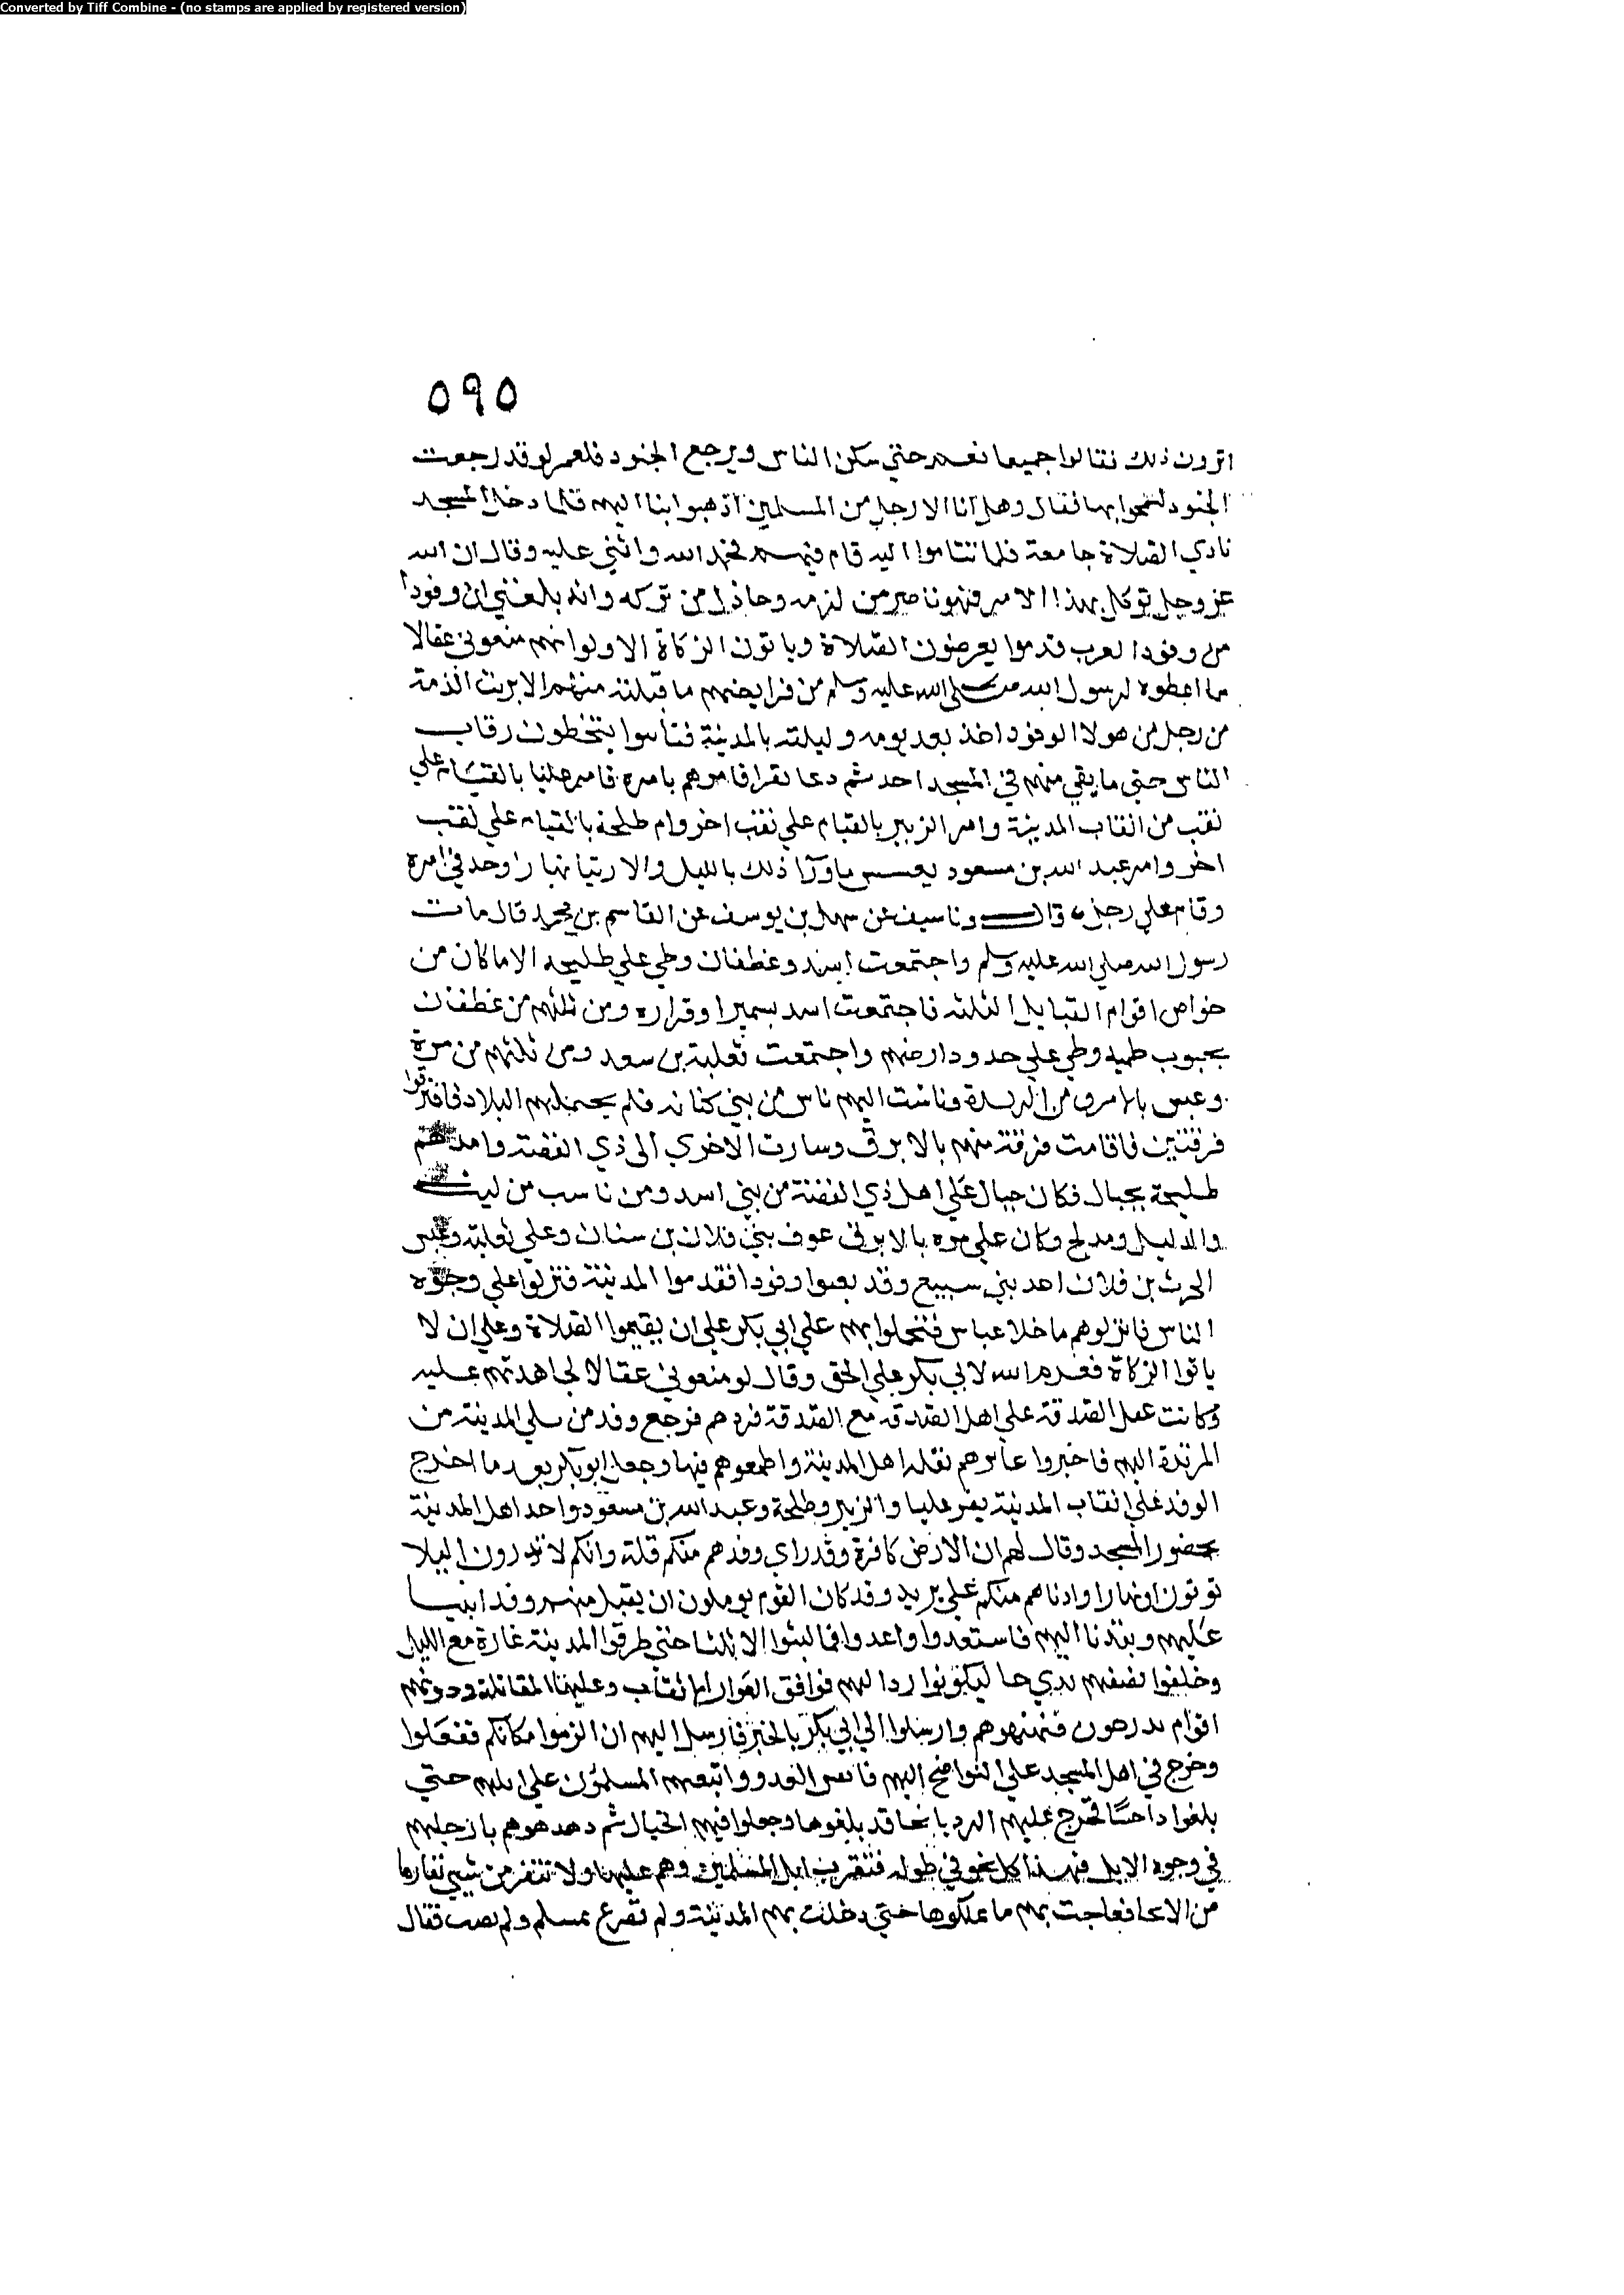 Converted by Tiff Combine - (no stamps are applied by registered version)
٥٩٥
اترون ذلك فقالوا جميعا نعم حتي سكن الناس ويرجع الجنود فلعمر لو قد رجعت
الجنود لسمحوا بها فقال وهل انا الا رجل من المسلمين اذهبوا بنا اليهم فلما دخل المسجد
نادي الصلاة جامعة فلما تتاموا اليه قام فيهم فحمد الله واثني عليه وقال ان الله
عز وجل توكل بهذا الامر فهو ناصر من لزمه وخاذل من تركه وانه بلغني ان وفودا
من وفود العرب قدموا يعرضون الصلاة وياتون الزكاة الا ولو انهم منعوني عقالا
مما اعطوه لرسول الله صلي الله عليه وسلم من فرايضهم ما قبلته منهم الا بريت الذمة
من رجل من هولا الوفود اخذ بعد يومه وليلته بالمدينة فتاسوا يتخطون رقاب
الناس حتي ما بقي منهم في المسجد احد ثم دعا نفرا فامرهم بامره فامر عليا بالقيام علي
نقب من انقاب المدينة وامر الزبير بالقيام علي نقب اخر وامر طلحة بالقيام علي نقب
اخر وامر عبد الله بن مسعود يعسس ما ورآ ذلك بالليل والارتبا نهارا وجد في امره
وقام علي رجل قال ونا سيف عن سهل بن يوسف عن القاسم بن محمد قال مات
رسول الله صلي الله عليه وسلم واجتمعت اسد وغطفان وطي علي طليحه الا ما كان من
خواص اقوام القبايل الثلثه فاجتمعت اسد بسميرا وفزاره ومن يليهم من غطفان
بجنوب طميه وطي علي حدود ارضهم واجتمعت ثعلبة بن سعد ومن يليهم من مرة
وعبس بالابرق من الربذة وتاشت اليهم ناس من بني كنانه فلم يحملهم البلاد فافترقوا
فرقتين فاقامت فرقة منهم بالابرق وسارت الاخري الي ذي القصة وامدهم
طليحة بحبال فكان حبال علي اهل ذي القصة من بني اسد ومن ناسب من ليث
والدليل ومدلج وكان علي مره بالابرق عوف بني فلان بن سنان وعلي ثعلبة وعبس
الحرث بن فلان احد بني سبيع وقد بعثوا وفودا فقدموا المدينة فنزلوا علي وجوه
الناس فانزلوهم ما خلا عباس فتحملوا بهم علي ابي بكر علي ان يقيموا الصلاة وعلي ان لا
ياتوا الزكاة فعزم الله لابي بكر علي الحق وقال لو منعوني عقالا لجاهدتهم عليه
وكانت عقل الصدقة علي اهل الصدقه مع الصدقة فردهم فرجع وفد من يلي المدينة من
المرتدة اليهم فاخبروا عشايرهم بقلة اهل المدينة واطمعوهم فيها وجعل ابو بكر بعد ما اخرج
الوفد علي انقاب المدينة نفر عليا والزبير وطلحة وعبد الله بن مسعود واخد اهل المدينة
بحضور المسجد وقال لهم ان الارض كافرة وقد راي وفدهم منكم قلة وانكم لا تدرون اليلا
توتون او نهارا وادناهم منكم علي بريد وقد كان القوم يوملون ان يقبل منهم وقد ابينا
عليهم ونبذنا اليهم فاستعدوا واعدوا فما لبثوا الا ثلثا حتي طرقوا المدينة غارة مع الليل
وخلفوا نصفهم بذي حسا ليكونوا ردا لهم فوافق الغوار الانقاب وعليها المقاتلة ودونهم
اقوام يدرجون فنبهوهم وارسلوا الي ابي بكر بالخبر فارسل اليهم ان الزموا مكانكم ففعلوا
وخرج في اهل المسجد علي النواضح اليهم فانفس العدو واتبعهم المسلمون علي ابلهم حتي
بلغوا ذا حسا فخرج عليهم الرد بانحا قد بلغوها وجعلوا فيها الحبال ثم دهدهوهم بارجلهم
في وجوه الابل فتهدنا كل نحو في طوله فنفرت ابل المسلمين وهم عليها ولا تنفر من شيي نفارها
من الانحا فعاجت بهم ما يملكوها حتي دخلت بهم المدينة ولم تصرع بمسلم ولم يصب فقال